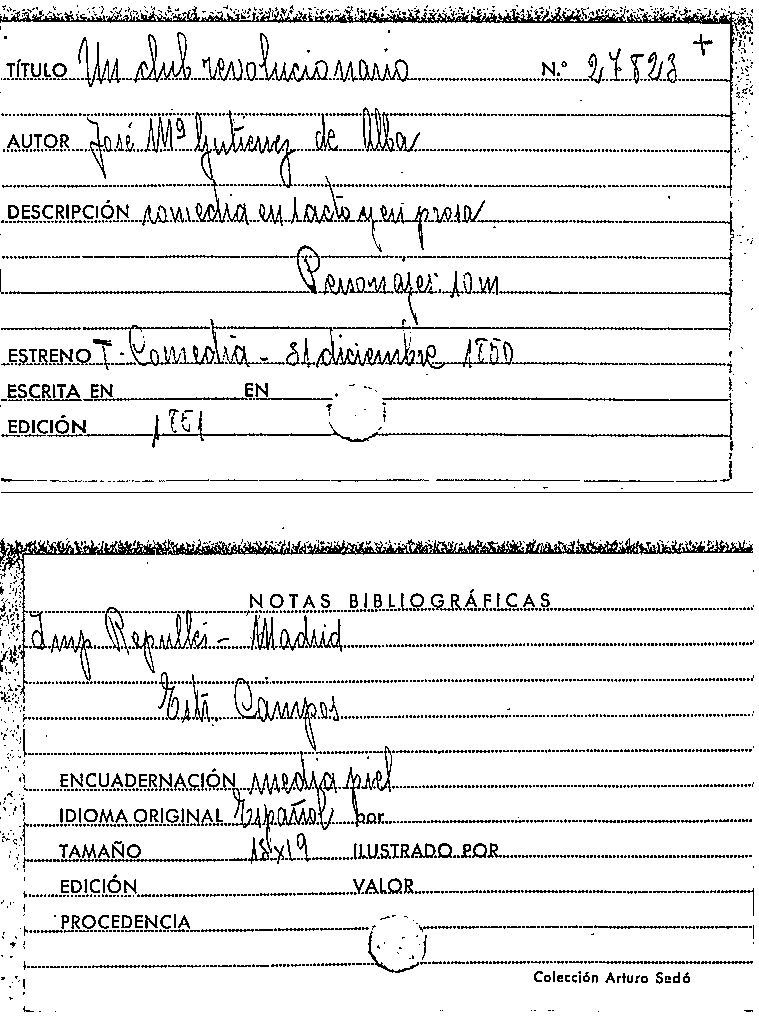 TÍTULO Un club revolucionario N.º 27823 +
AUTOR José Mª Gutierrez de Alba
DESCRIPCIÓN comedia en 1 acto y en prosa
Personajes: 10 m
ESTRENO T. Comedia - 31 diciembre 1850
ESCRITA EN EN
EDICIÓN 1851
NOTAS BIBLIOGRÁFICAS
Imp Repullés - Madrid
Campos
ENCUADERNACIÓN media piel
IDIOMA ORIGINAL Español por
TAMAÑO 18x19 ILUSTRADO POR
EDICIÓN VALOR
PROCEDENCIA
Colección Arturo Sedó